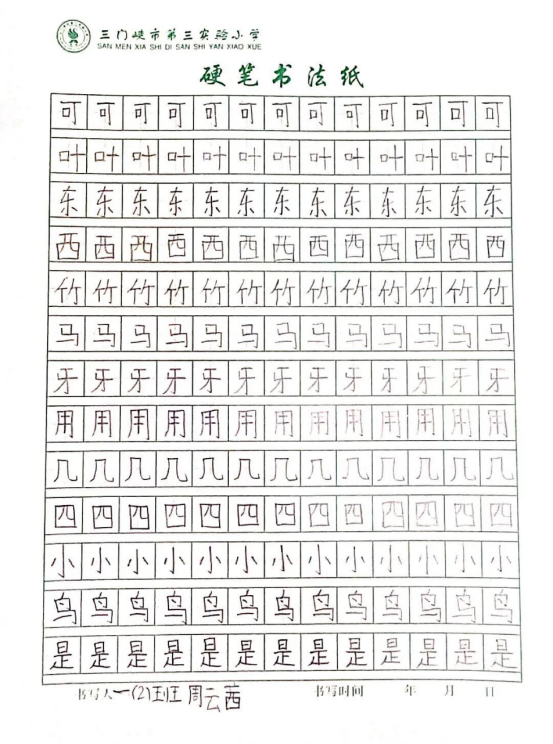 三门峡市第三实验小学
SAN MEN XIA SHI DI SAN SHI YAN XIAO XUE
硬笔书法纸
可可可可可可可可可可可可可
叶叶叶叶叶叶叶叶叶叶叶叶叶
东东东东东东东东东东东东东
西西西西西西西西西西西西西
竹竹竹竹竹竹竹竹竹竹竹竹竹
马马马马马马马马马马马马马
牙牙牙牙牙牙牙牙牙牙牙牙牙
用用用用用用用用用用用用用
几几几几几几几几几几几几几
四四四四四四四四四四四四四
小小小小小小小小小小小小小
鸟鸟鸟鸟鸟鸟鸟鸟鸟鸟鸟鸟鸟
是是是是是是是是是是是是是
书写人一(2)班周云茜 书写时间 年 月 日